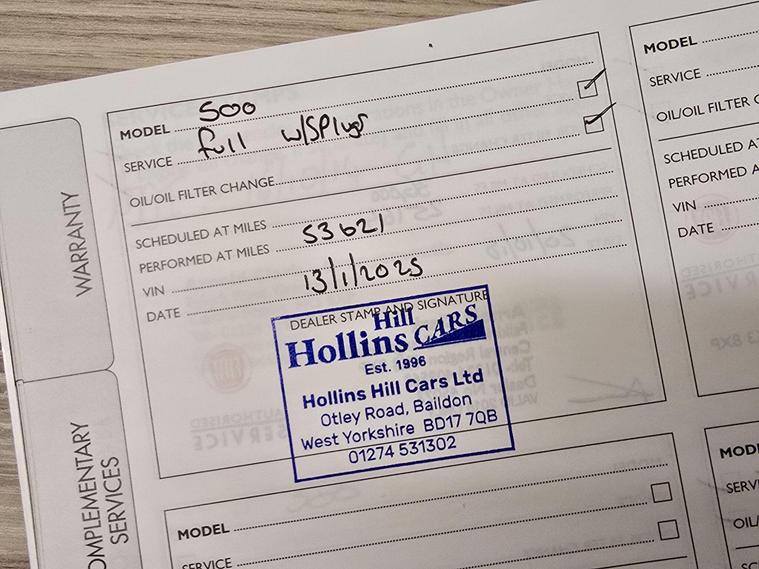 WARRANTY
OMPLEMENTARY
SERVICES
MODEL 500
SERVICE full w/SPlugs
OIL/OIL FILTER CHANGE
SCHEDULED AT MILES
PERFORMED AT MILES 53621
VIN
DATE 13/1/2025
DEALER STAMP AND SIGNATURE
Hill
Hollins CARS
Est. 1996
Hollins Hill Cars Ltd
Otley Road, Baildon
West Yorkshire BD17 7QB
01274 531302
MODEL
SERVICE
MODEL
SERVICE
OIL/OIL FILTER C
SCHEDULED AT
PERFORMED A
VIN
DATE
MODE
SERV
OIL/
SC